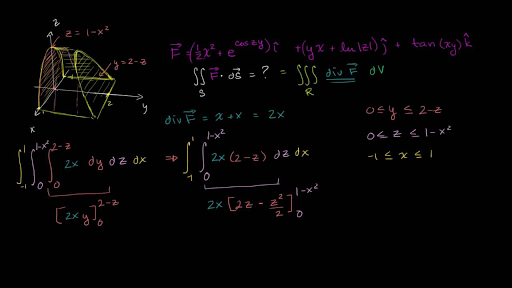 z
z = 1-x²
y = 2-z
1
2
y
x
F⃗ = (½x² + e^{cos zy}) î + (yx + ln|z|) ĵ + tan(xy) k̂
∬_S F⃗ · dS⃗ = ? = ∭_R div F⃗ dV
div F⃗ = x + x = 2x
0 ≤ y ≤ 2-z
0 ≤ z ≤ 1-x²
-1 ≤ x ≤ 1
∫_{-1}^{1} ∫_0^{1-x²} ∫_0^{2-z} 2x dy dz dx ⇒ ∫_{-1}^{1} ∫_0^{1-x²} 2x (2-z) dz dx
[2xy]_0^{2-z}
2x [2z - z²/2]_0^{1-x²}